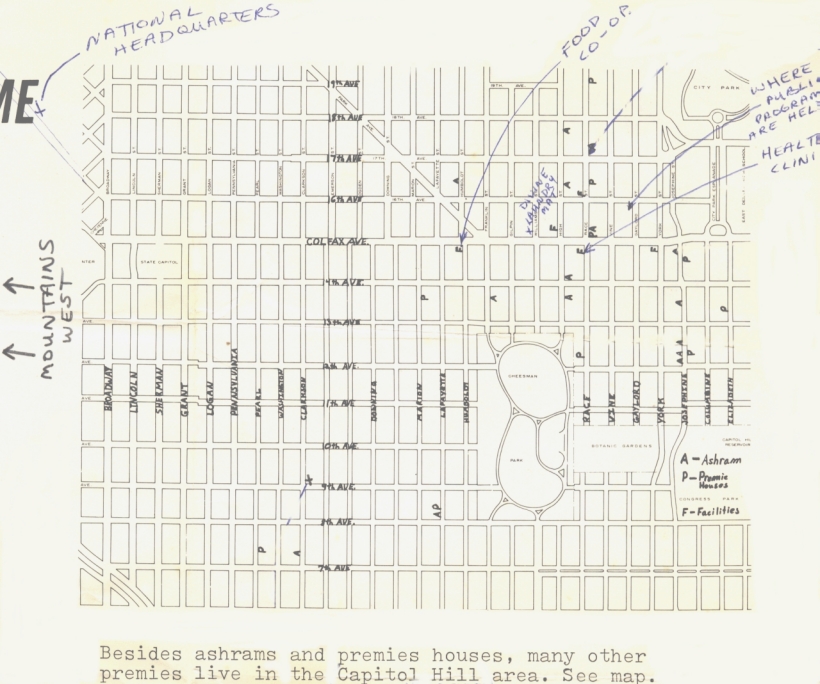 NATIONAL
HEADQUARTERS
ME
FOOD
CO-OP.
WHERE
PUBLIC
PROGRAM
ARE HELD
HEALTH
CLINI
DIVINE
LAUNDRY
MAT
MOUNTAINS
WEST
19th AVE
18th AVE
17th AVE
16th AVE
COLFAX AVE.
14th AVE.
13th AVE
12th AVE.
11th AVE
10th AVE.
9th AVE.
8th AVE.
7th AVE
CITY PARK
STATE CAPITOL
BROADWAY
LINCOLN
SHERMAN
GRANT
LOGAN
PENNSYLVANIA
PEARL
WASHINGTON
CLARKSON
DOWNING
MARION
LAFAYETTE
HUMBOLDT
CHEESMAN
PARK
RACE
VINE
GAYLORD
YORK
JOSEPHINE
COLUMBINE
ELIZABETH
BOTANIC GARDENS
CONGRESS PARK
A - Ashram
P - Premie
Houses
F - Facilities
Besides ashrams and premies houses, many other
premies live in the Capitol Hill area. See map.